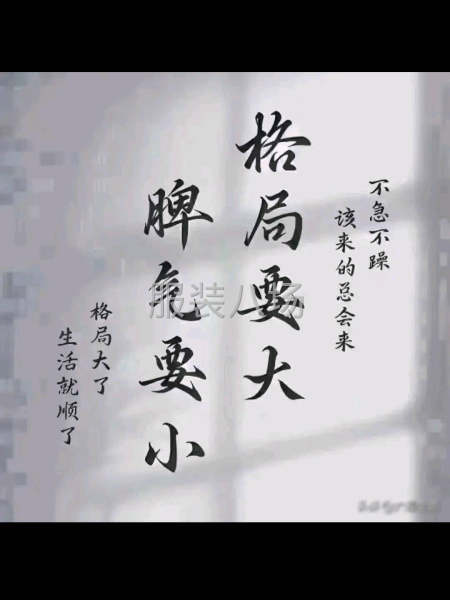 不急不躁
该来的总会来
格局要大
脾气要小
格局大了
生活就顺了
服装八场